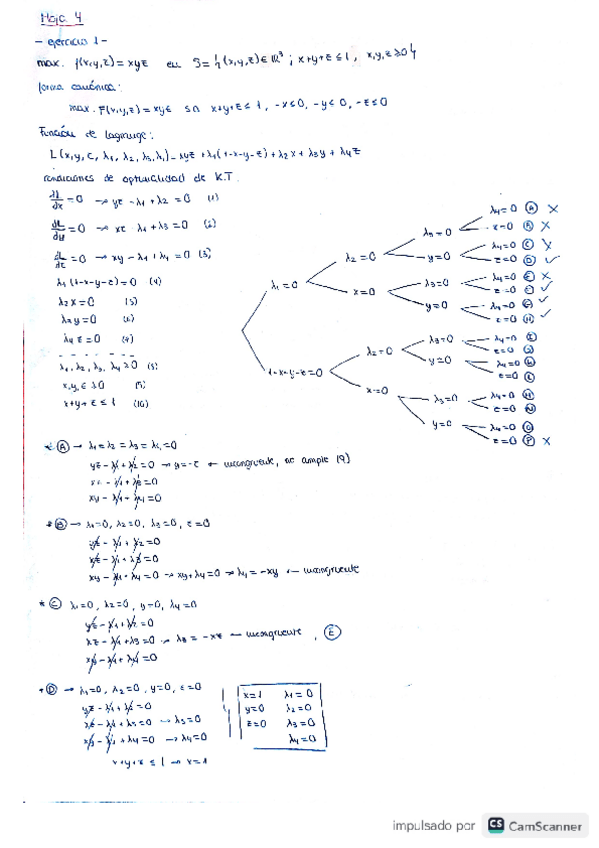 Hoja 4
- ejercicio 1 -
max. f(x,y,z) = xyz en S = {(x,y,z) ∈ ℝ³ ; x+y+z ≤ 1, x,y,z ≥ 0}
forma canónica:
max. F(x,y,z) = xyz s.a x+y+z ≤ 1, -x ≤ 0, -y ≤ 0, -z ≤ 0
Función de Lagrange:
condiciones de optimalidad de K.T.
= 0 → yz - λ1 + λ2 = 0 (1)
= 0 → xz - λ1 + λ3 = 0 (2)
= 0 → xy - λ1 + λ4 = 0 (3)
λ1 (1-x-y-z) = 0 (4)
λ2 x = 0 (5)
λ3 y = 0 (6)
λ4 z = 0 (7)
λ1, λ2, λ3, λ4 ≥ 0
x, y, z ≥ 0
x+y+z ≤ 1 (10)
λ1 = 0
1-x-y-z = 0
λ2 = 0
x = 0
λ2 = 0
x = 0
λ3 = 0
y = 0
λ3 = 0
y = 0
λ3 = 0
y = 0
λ3 = 0
y = 0
λ4 = 0 (A) ✗
(B) ✗
λ4 = 0 (C) ✗
z = 0 (D) ✓
λ4 = 0 (E) ✗
z = 0 ✓
λ4 = 0 ✓
z = 0 (H) ✓
λ4 = 0
z = 0
λ4 = 0
z = 0
λ4 = 0
z = 0 (N)
λ4 = 0
z = 0 (P) ✗
* (A) → λ1 = λ2 = λ3 = λ4 = 0
yz - λ1 + λ2 = 0 → y = -z ← incongruente, no cumple (9)
xz - λ1 + λ3 = 0
xy - λ1 + λ4 = 0
* (B) → λ1 = 0, λ2 = 0, λ3 = 0, z = 0
yz - λ1 + λ2 = 0
xz - λ1 + λ3 = 0
xy - λ1 + λ4 = 0 → xy + λ4 = 0 → λ4 = -xy ← incongruente
* (C) λ1 = 0, λ2 = 0, y = 0, λ4 = 0
yz - λ1 + λ2 = 0
xz - λ1 + λ3 = 0 → λ3 = -xz ← incongruente, (E)
xy - λ1 + λ4 = 0
* (D) → λ1 = 0, λ2 = 0, y = 0, z = 0
yz - λ1 + λ2 = 0
xz - λ1 + λ3 = 0 → λ3 = 0
xy - λ1 + λ4 = 0 → λ4 = 0
x = 1 λ1 = 0
y = 0 λ2 = 0
z = 0 λ3 = 0
λ4 = 0
≤ 1 → x = 1
impulsado por CS CamScanner